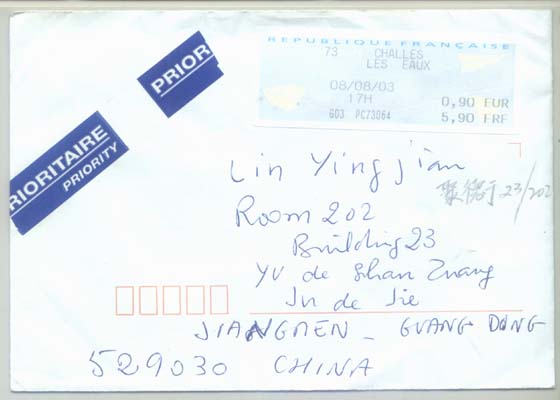 PRIOR
PRIORITAIRE
PRIORITY
REPUBLIQUE FRANÇAISE
73 CHALLES
LES EAUX
08/08/03
17H
0,90 EUR
G03 PC73064
5,90 FRF
Lin Yingjian
23/202
Room 202
Building 23
Yu de Shan Zuang
Ju de Jie
JIANGMEN - GUANG DONG
529030 CHINA